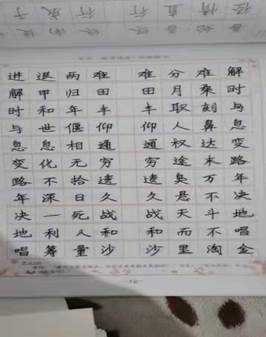 进退两难 难分难解
解甲归田 田月桑时
时和年丰 丰取刻与
与世偃仰 仰人鼻息
息息相通 通权达变
变化无穷 穷途末路
路不拾遗 遗臭万年
年深日久 久悬不决
决一死战 战天斗地
地利人和 和而不唱
唱筹量沙 沙里淘金